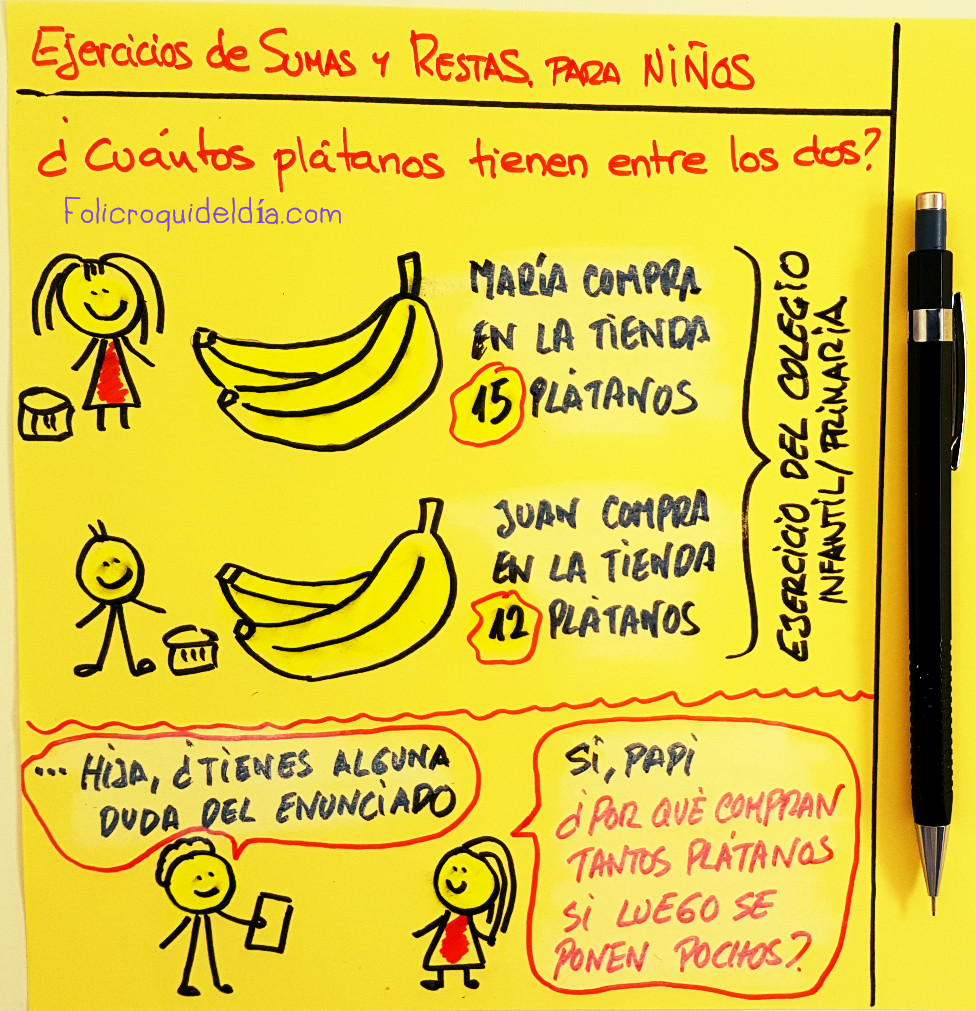 Ejercicios de SUMAS Y RESTAS, PARA NIÑOS
¿Cuántos plátanos tienen entre los dos?
Folicroquideldía.com
MARÍA COMPRA
EN LA TIENDA
15 PLÁTANOS
JUAN COMPRA
EN LA TIENDA
12 PLÁTANOS
EJERCICIO DEL COLEGIO
INFANTIL/PRIMARIA
... HIJA, ¿TIENES ALGUNA
DUDA DEL ENUNCIADO
SÍ, PAPI
¿POR QUÉ COMPRAN
TANTOS PLÁTANOS
SI LUEGO SE
PONEN POCHOS?